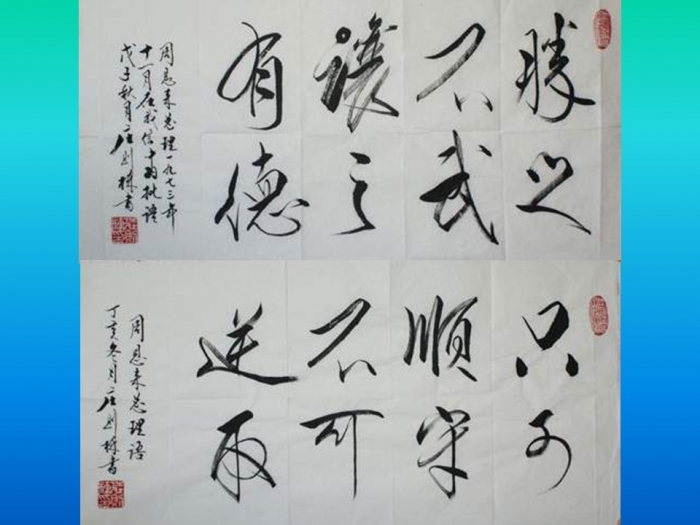 勝之
不武
讓之
有德
周恩来总理一九七三年
十一月在我信上的批语
戊子秋月庄则栋书
只可
順守
不可
逆取
周恩来总理语
丁亥冬月庄则栋书